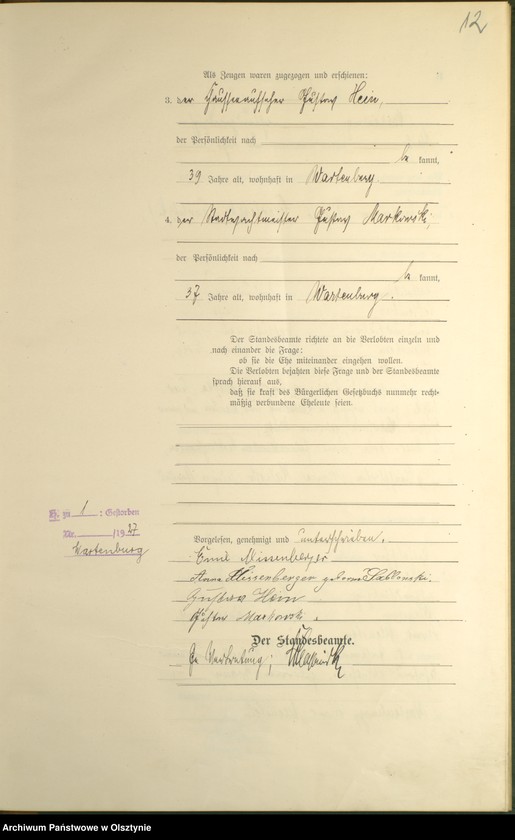 12
Als Zeugen waren zugezogen und erschienen:
3. der Gustav Hein,
der Persönlichkeit nach
be kannt,
39 Jahre alt, wohnhaft in Wartenburg.
4. der Stadtwachtmeister Gustav Markowski,
der Persönlichkeit nach
be kannt,
37 Jahre alt, wohnhaft in Wartenburg.
Der Standesbeamte richtete an die Verlobten einzeln und
nach einander die Frage:
ob sie die Ehe miteinander eingehen wollen.
Die Verlobten bejahten diese Frage und der Standesbeamte
sprach hierauf aus,
daß sie kraft des Bürgerlichen Gesetzbuchs nunmehr recht-
mäßig verbundene Eheleute seien.
H. zu 1 : Gestorben
Nr. /1927
Wartenburg
Vorgelesen, genehmigt und unterschrieben.
Emil Missenberger
Anna Missenberger geborene Jablonski.
Gustav Hein
Gustav Markowski.
Der Standesbeamte.
In Vertretung;
Archiwum Państwowe w Olsztynie